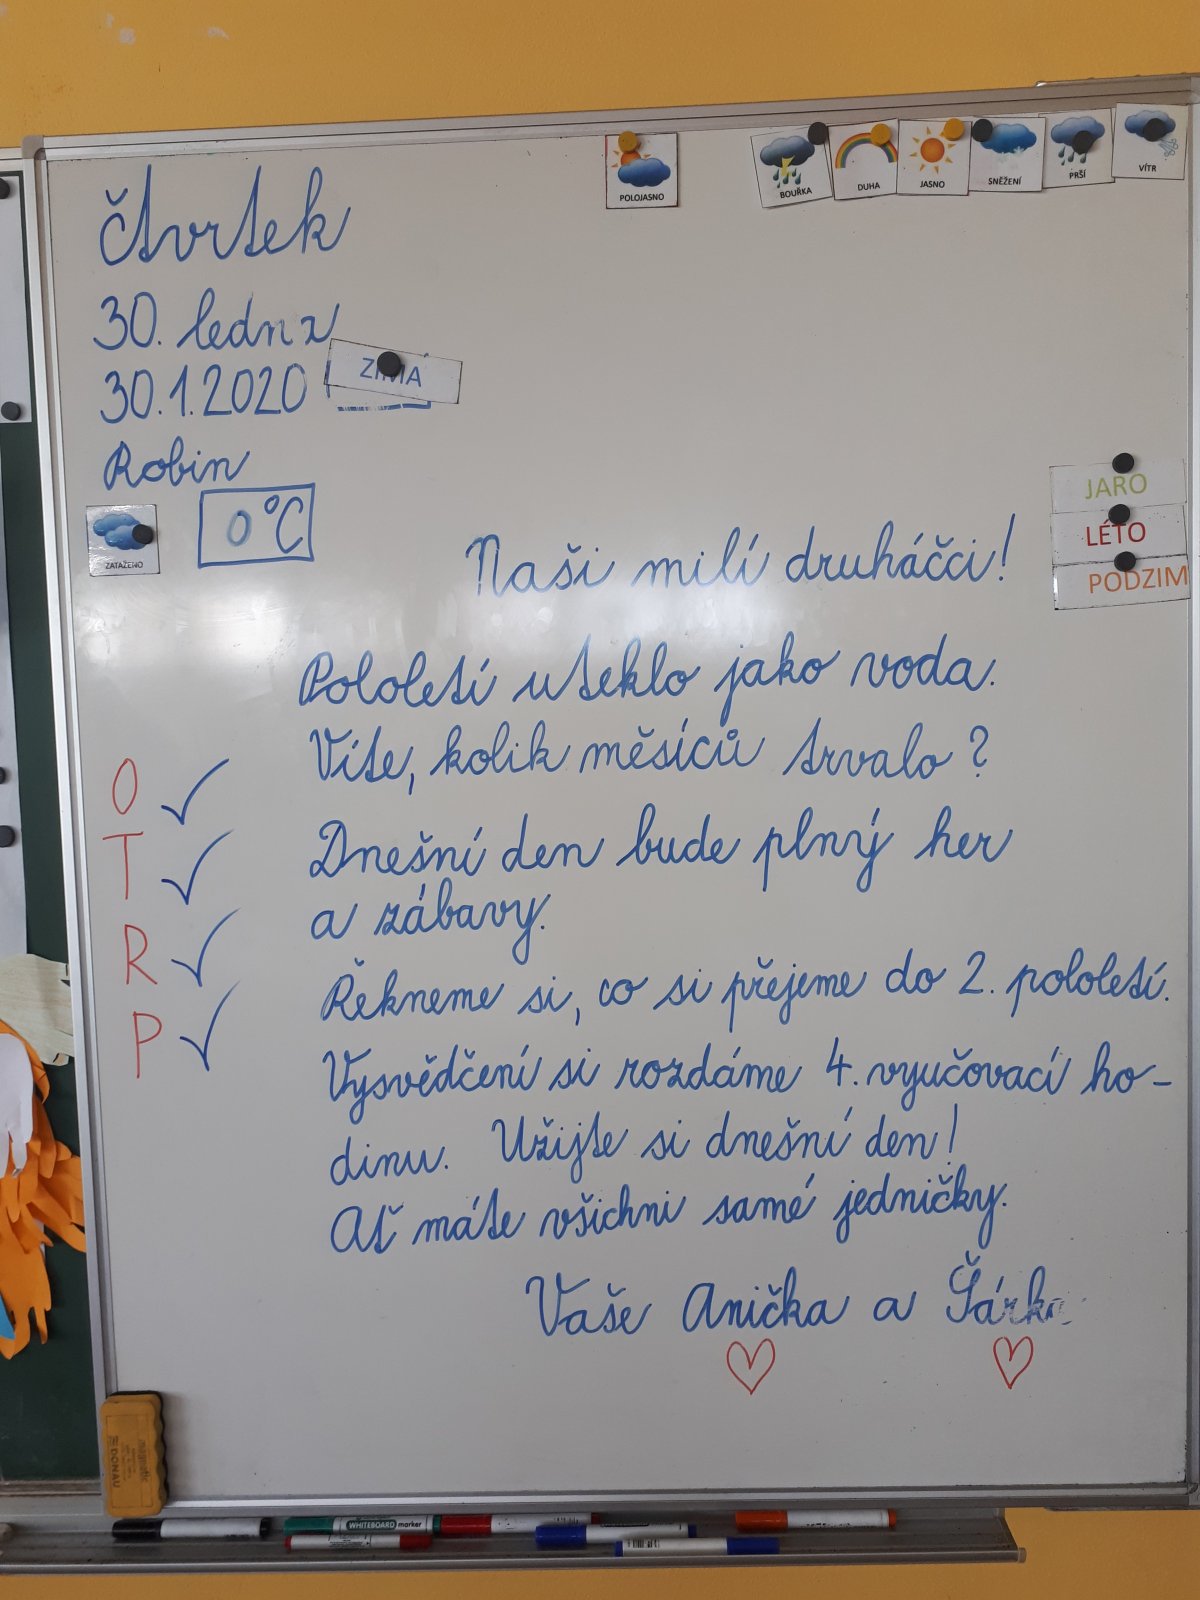 Čtvrtek
30. ledna
30.1.2020 ZIMA
Robin
ZATAŽENO 0°C
POLOJASNO
BOUŘKA DUHA JASNO SNĚŽENÍ PRŠÍ VÍTR
JARO
LÉTO
PODZIM
Naši milí druháčci!
Pololetí uteklo jako voda.
Víte, kolik měsíců trvalo?
Dnešní den bude plný her
a zábavy.
Řekneme si, co si přejeme do 2. pololetí.
Vysvědčení si rozdáme 4. vyučovací ho-
dinu. Užijte si dnešní den!
Ať máte všichni samé jedničky.
Vaše Anička a Šárka
O
T
R
P
DONAU
WHITEBOARD marker